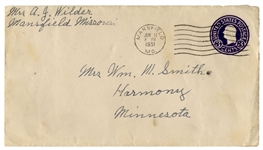 Mrs A. J. Wilder
Mansfield Missouri
MANSFIELD
1951
MO.
UNITED STATES POSTAGE
Mrs Wm. M. Smith
Harmony
Minnesota